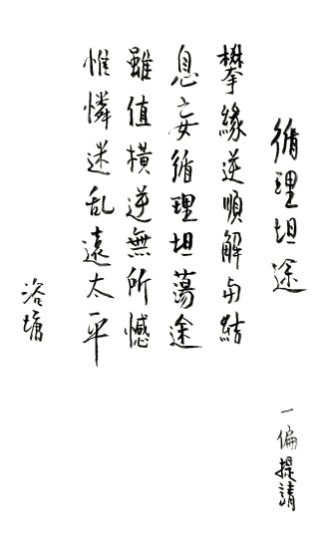 循理坦途
一偏提請
攀緣逆順解与結
息妄循理坦蕩途
雖值橫逆無所憾
惟憐迷乱遠太平
浴塘